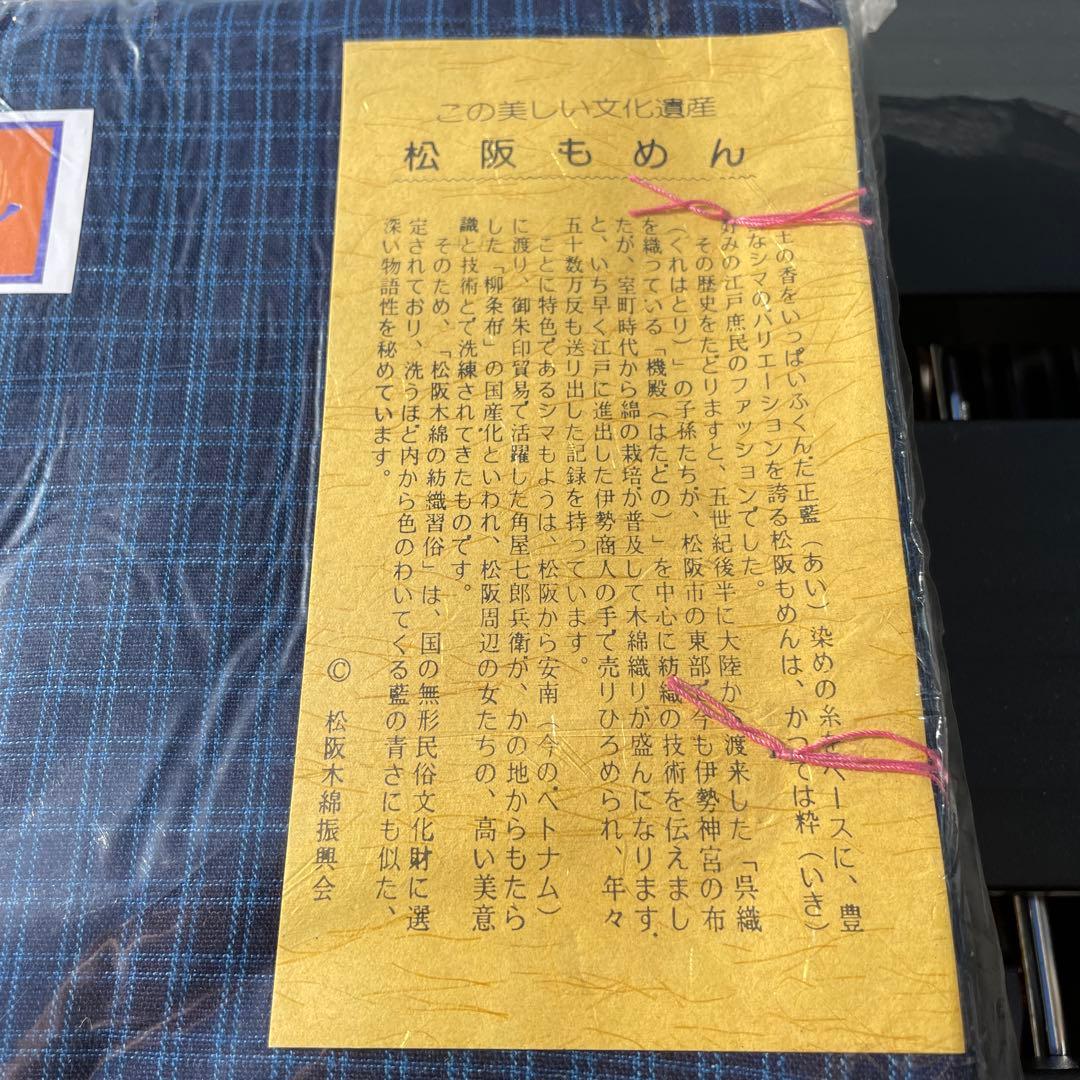 この美しい文化遺産
松阪もめん
土の香をいっぱいふくんだ正藍（あい）染めの糸をベースに、豊
なシマのバリエーションを誇る松阪もめんは、かつては粋（いき）
好みの江戸庶民のファッションでした。
その歴史をたどりますと、五世紀後半に大陸か 渡来した「呉織
（くれはとり）」の子孫たちが、松阪市の東部 今も伊勢神宮の布
を織っている「機殿（はたどの）」を中心に紡織の技術を伝えまし
たが、室町時代から綿の栽培が普及して木綿織りが盛んになります。
と、いち早く江戸に進出した伊勢商人の手で売りひろめられ、年々
五十数万反も送り出した記録を持っています。
ことに特色であるシマもようは、松阪から安南（今のベトナム）
に渡り、御朱印貿易で活躍した角屋七郎兵衛が、かの地からもたら
した「柳条布」の国産化といわれ、松阪周辺の女たちの、高い美意
識と技術とで洗練されてきたものです。
そのため、「松阪木綿の紡織習俗」は、国の無形民俗文化財に選
定されており、洗うほど内から色のわいてくる藍の青さにも似た、
深い物語性を秘めています。
© 松阪木綿振興会